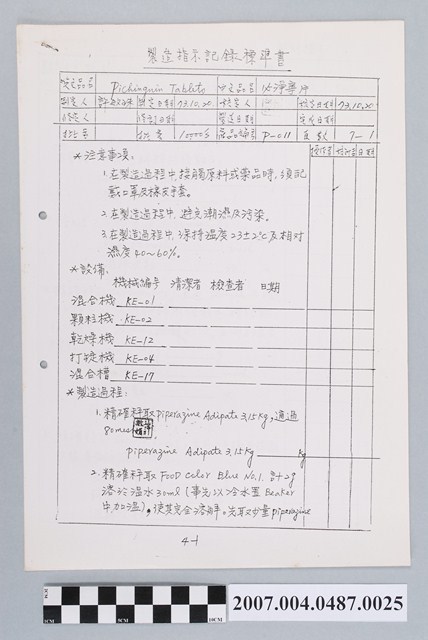 製造指示記錄標準書
英文品名 Pichinguin Tablets 中文品名 必淨寧片
制定人 制定日期 73.10.20 核定人 核定日期 73.10.20
修定人 修訂日期 製造日期 完成日期
批号 批量 10000S 產品編号 P-011 頁數 7-1
操作者 核对者 日期
*注意事項:
1.在製造過程中,接觸原料或藥品時,須配
戴口罩及橡皮手套。
2.在製造過程中,避免潮濕及污染。
3.在製造過程中,保持溫度23±2℃及相对
濕度40~60%。
*設備:
機械編号 清潔者 檢查者 日期
混合機 KE-01
顆粒機 KE-02
乾燥機 KE-12
打錠機 KE-04
混合槽 KE-17
*製造過程:
1.精確秤取piperazine Adipate 3.15kg,通過
80mesh。
piperazine Adipate 3.15kg kg
2.精確秤取 Food Color Blue No.1. 2g
溶於溫水30ml(事先以冷水置 Beaker
中加溫),使其完全溶解。先取少量piperazine
4-1
2007.004.0487.0025